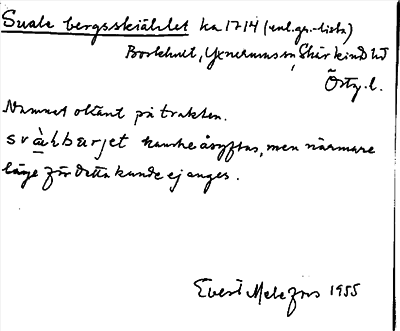 Suale bergsskiählet ka 1714 (enl. gr.-lista)
Borkhult, Yxnerums sn, Skärkind hd
Östg. l.
Namnet okänt på trakten.
svàlbärjet kanske åsyftas, men närmare
läge för detta kunde ej anges.
Evert Melefors 1955